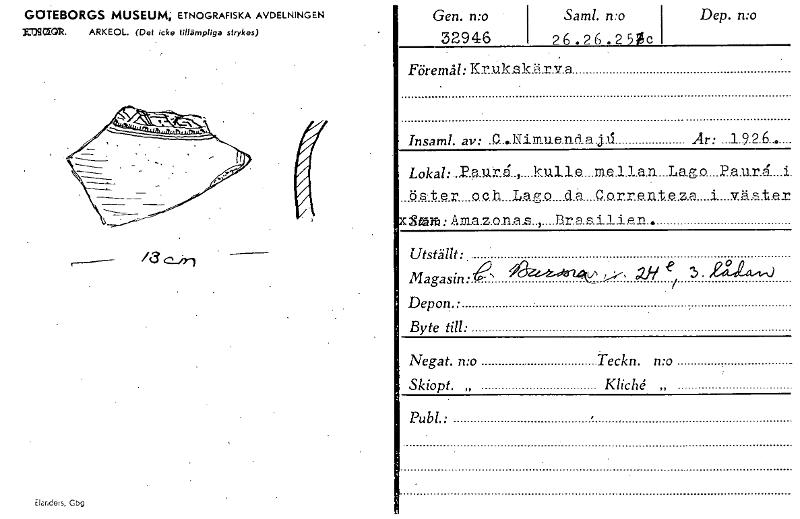 GÖTEBORGS MUSEUM, ETNOGRAFISKA AVDELNINGEN
ARKEOL. (Det icke tillämpliga strykes)
13 cm
Elanders, Gbg
Gen. n:o Saml. n:o Dep. n:o
32946 26.26.25 c
Föremål: Krukskärva
Insaml. av: C. Nimuendajú År: 1926.
Lokal: Paurá, kulle mellan Lago Paurá i
öster och Lago da Correnteza i väster
Amazonas, Brasilien.
Utställt:
Magasin: 24 e, 3. lådan
Depon.:
Byte till:
Negat. n:o Teckn. n:o
Skiopt. „ Kliché „
Publ.: